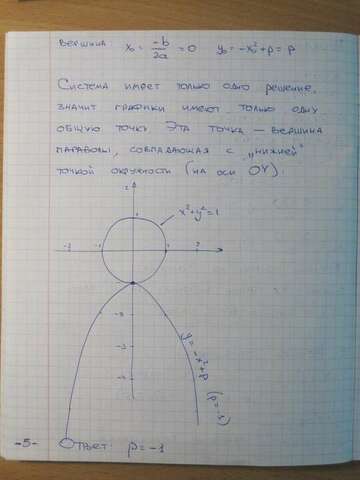 Вершина: x₀ = -b/2a = 0 y₀ = -x₀²+p = p
Система имеет только одно решение,
значит графики имеют только одну
общую точку. Эта точка — вершина
параболы, совпадающая с „нижней"
точкой окружности (на оси OY).
2
x²+y²=1
-2 -1 1 2
-2
-3
-4
y = -x²+p
(p=-1)
-5-
Ответ: p = -1